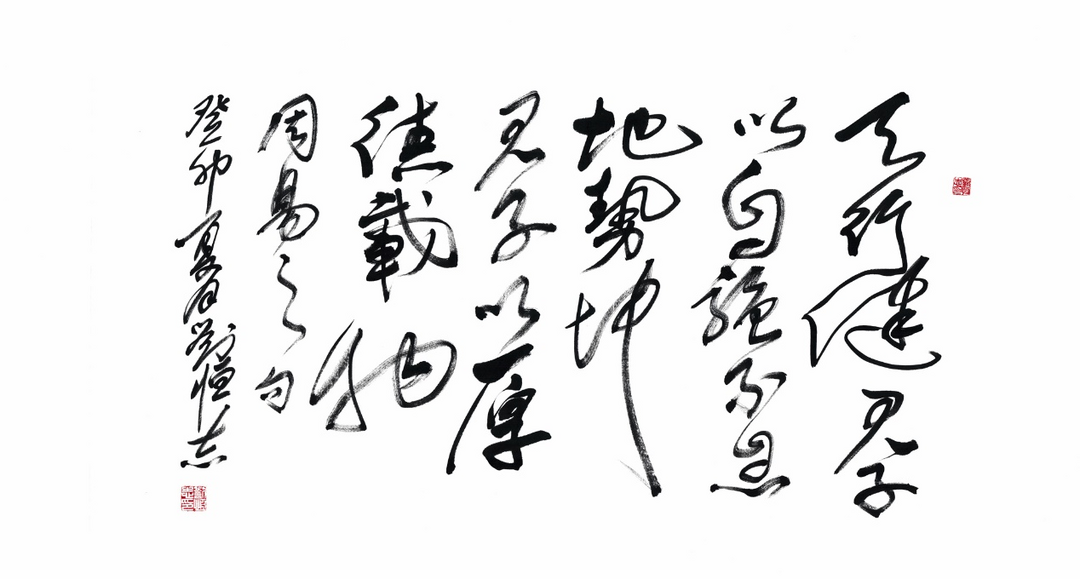 天行健君子
以自强不息
地勢坤
君子以厚
德載物
周易之句
癸卯夏月劉恒志